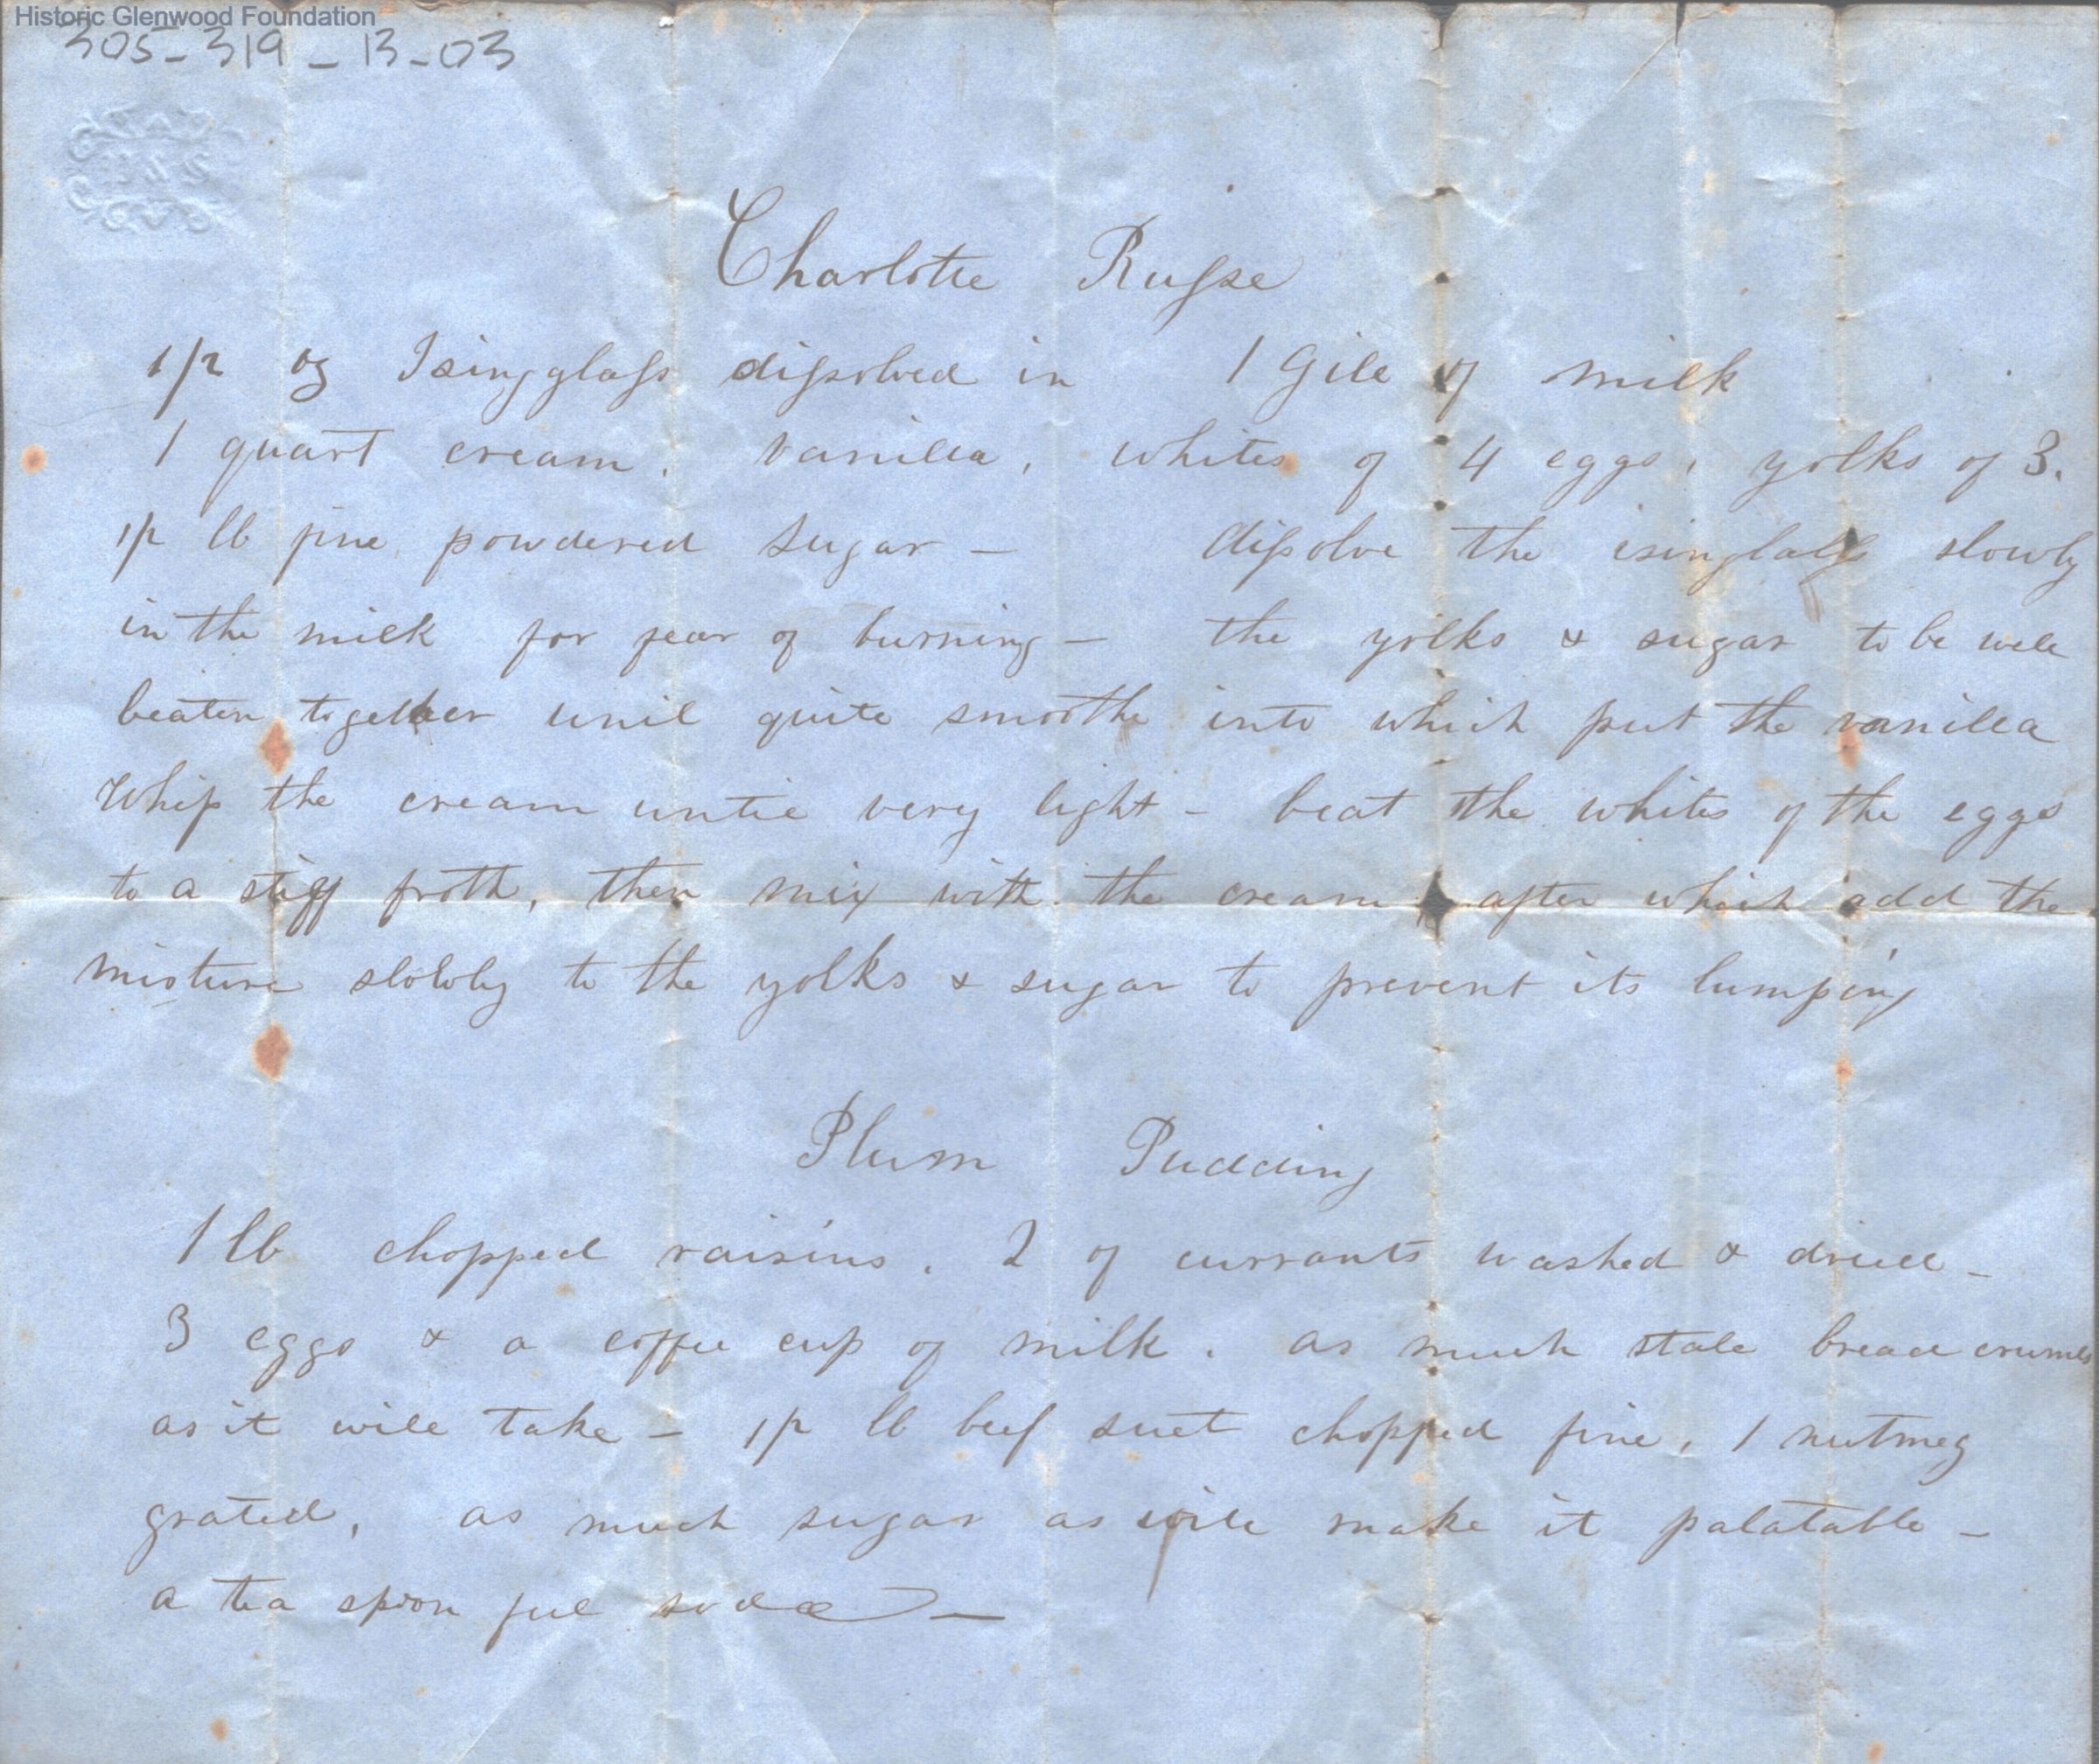 Historic Glenwood Foundation
305-319-13-03
Charlotte Russe
1/2 oz Isingglass dissolved in 1 Gill of milk
1 quart cream. vanilla, whites of 4 eggs, yolks of 3.
1/2 lb fine powdered sugar — dissolve the isinglass slowly
in the milk for fear of burning — the yolks & sugar to be well
beaten together unil quite smoothe into which put the vanilla
Whip the cream until very light - beat the whites of the eggs
to a stiff froth, then mix with the cream after which add the
mixture slowly to the yolks & sugar to prevent its lumping
Plum Pudding
1 lb chopped raisins. 2 of currants washed & dried -
3 eggs & a coffee cup of milk. as much stale bread crumbs
as it will take — 1/2 lb beef suet chopped fine, 1 nutmeg
grated, as much sugar as will make it palatable —
a tea spoon full soda —